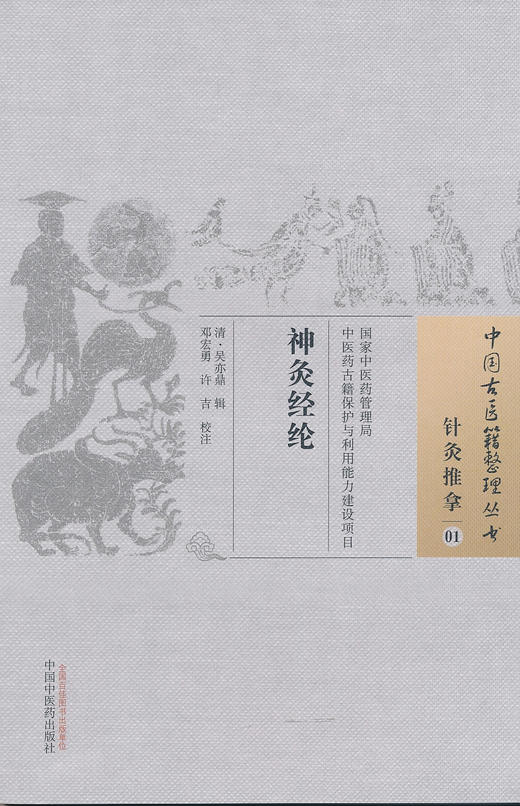 中国古医籍整理丛书
针灸推拿
01
国家中医药管理局
中医药古籍保护与利用能力建设项目
神灸经纶
清·吴亦鼎 辑
邓宏勇 许 吉 校注
全国百佳图书出版单位
中国中医药出版社